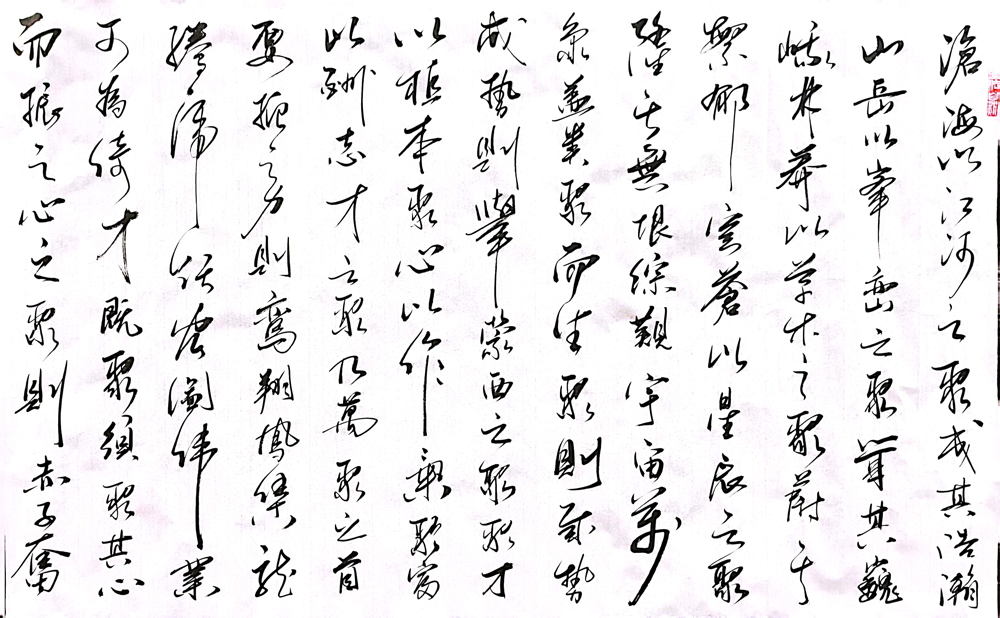 滄海以江河之聚成其浩瀚
山岳以峯巒之聚聳其巍
峨林莽以草木之聚蔚其
繁郁穹蒼以星辰之聚
隆其無垠綜觀宇宙萬
象蓋類聚而生聚則成勢
成勢則舉蒙西之聚聚才
以植本聚心以作興聚富
以酬志才之聚乃萬聚之首
要之力則鸞翔鳳集龍
騰宏圖偉業
可為倚才既聚須聚其心
而振之心之聚則赤子奮